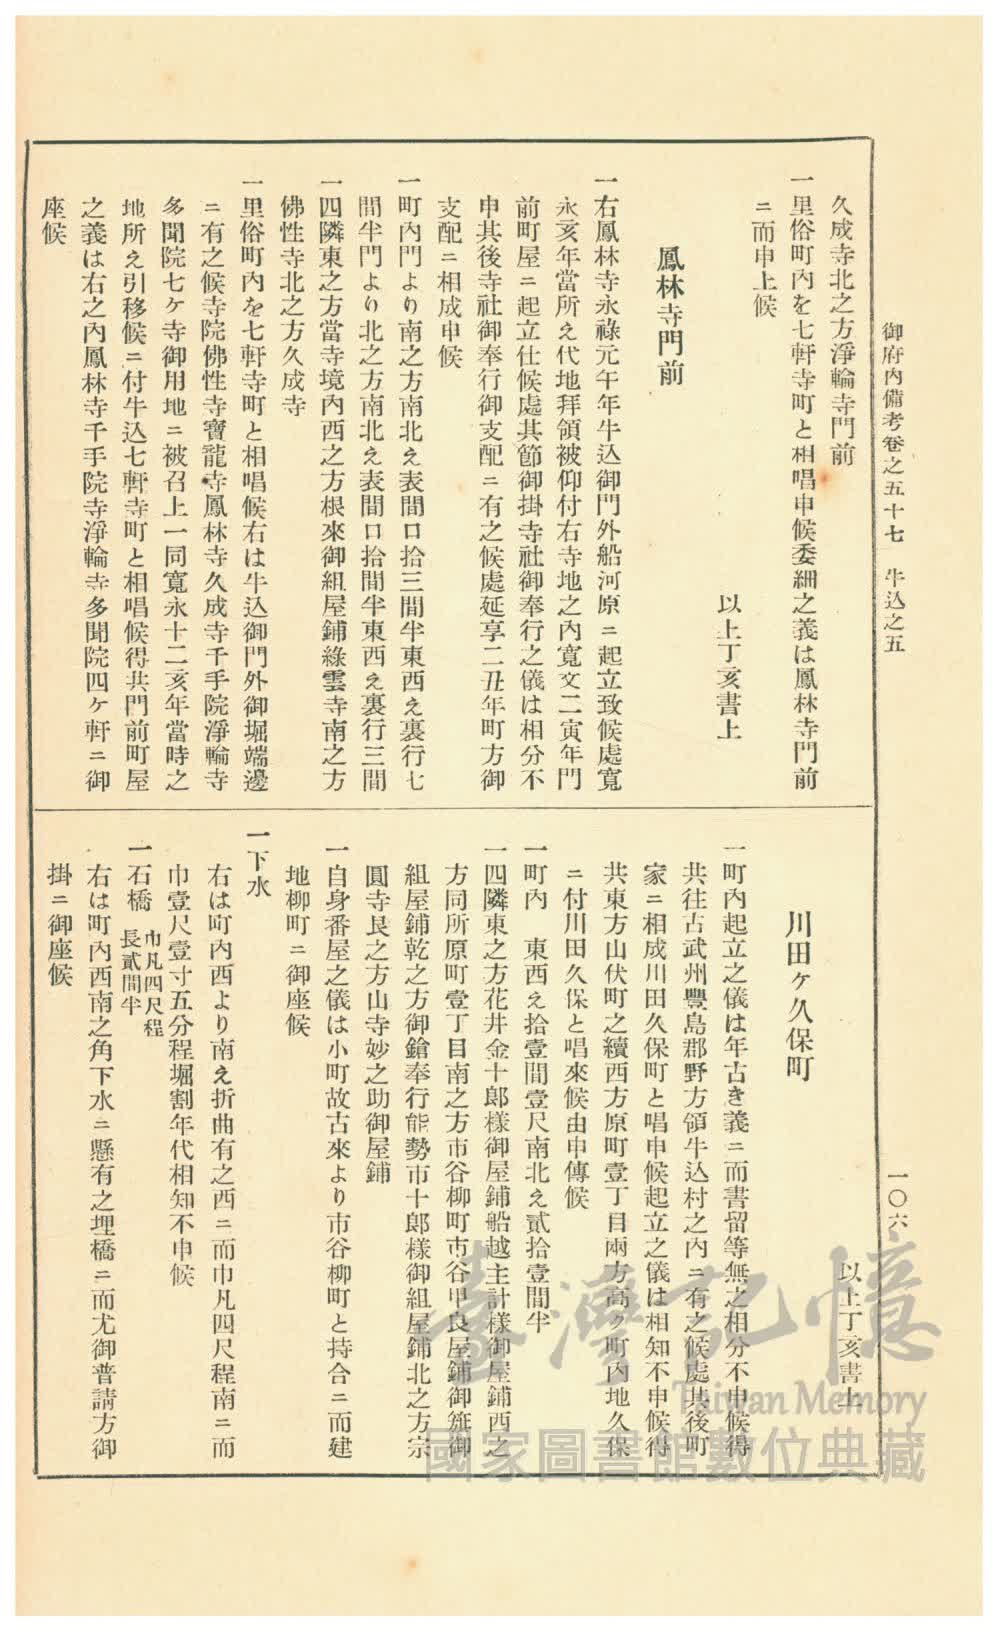 御府內備考卷之五十七　牛込之五
一〇六
久成寺北之方淨輪寺門前
一里俗町內を七軒寺町と相唱申候委細之義は鳳林寺門前
ニ而申上候
以上丁亥書上
鳳林寺門前
一右鳳林寺永祿元午年牛込御門外船河原ニ起立致候處寬
永亥年當所え代地拜領被仰付右寺地之內寬文二寅年門
前町屋ニ起立仕候處其節御掛寺社御奉行之儀は相分不
申其後寺社御奉行御支配ニ有之候處延享二丑年町方御
支配ニ相成申候
一町內門より南之方南北え表間口拾三間半東西え裏行七
間半門より北之方南北え表間口拾間半東西え裏行三間
一四隣東之方當寺境內西之方根來御組屋鋪綠雲寺南之方
佛性寺北之方久成寺
一里俗町內を七軒寺町と相唱候右は牛込御門外御堀端邊
ニ有之候寺院佛性寺寶龍寺鳳林寺久成寺千手院淨輪寺
多聞院七ケ寺御用地ニ被召上一同寬永十二亥年當時之
地所え引移候ニ付牛込七軒寺町と相唱候得共門前町屋
之義は右之內鳳林寺千手院寺淨輪寺多聞院四ケ軒ニ御
座候
以上丁亥書上
川田ケ久保町
一町內起立之儀は年古き義ニ而書留等無之相分不申候得
共往古武州豐島郡野方領牛込村之內ニ有之候處其後町
家ニ相成川田久保町と唱申候起立之儀は相知不申候得
共東方山伏町之續西方原町壹丁目兩方高ク町內地久保
ニ付川田久保と唱來候由申傳候
一町內　東西え拾壹間壹尺南北え貳拾壹間半
一四隣東之方花井金十郎樣御屋鋪船越主計樣御屋鋪西之
方同所原町壹丁目南之方市谷柳町市谷甲良屋鋪御簱御
組屋鋪乾之方御鎗奉行能勢市十郎樣御組屋鋪北之方宗
圓寺艮之方山寺妙之助御屋鋪
一自身番屋之儀は小町故古來より市谷柳町と持合ニ而建
地柳町ニ御座候
一下水
右は町內西より南え折曲有之西ニ而巾凡四尺程南ニ而
巾壹尺壹寸五分程堀割年代相知不申候
一石橋　巾凡四尺程
長貳間半
右は町內西南之角下水ニ懸有之埋橋ニ而尤御普請方御
掛ニ御座候
臺灣記憶
Taiwan Memory
國家圖書館數位典藏